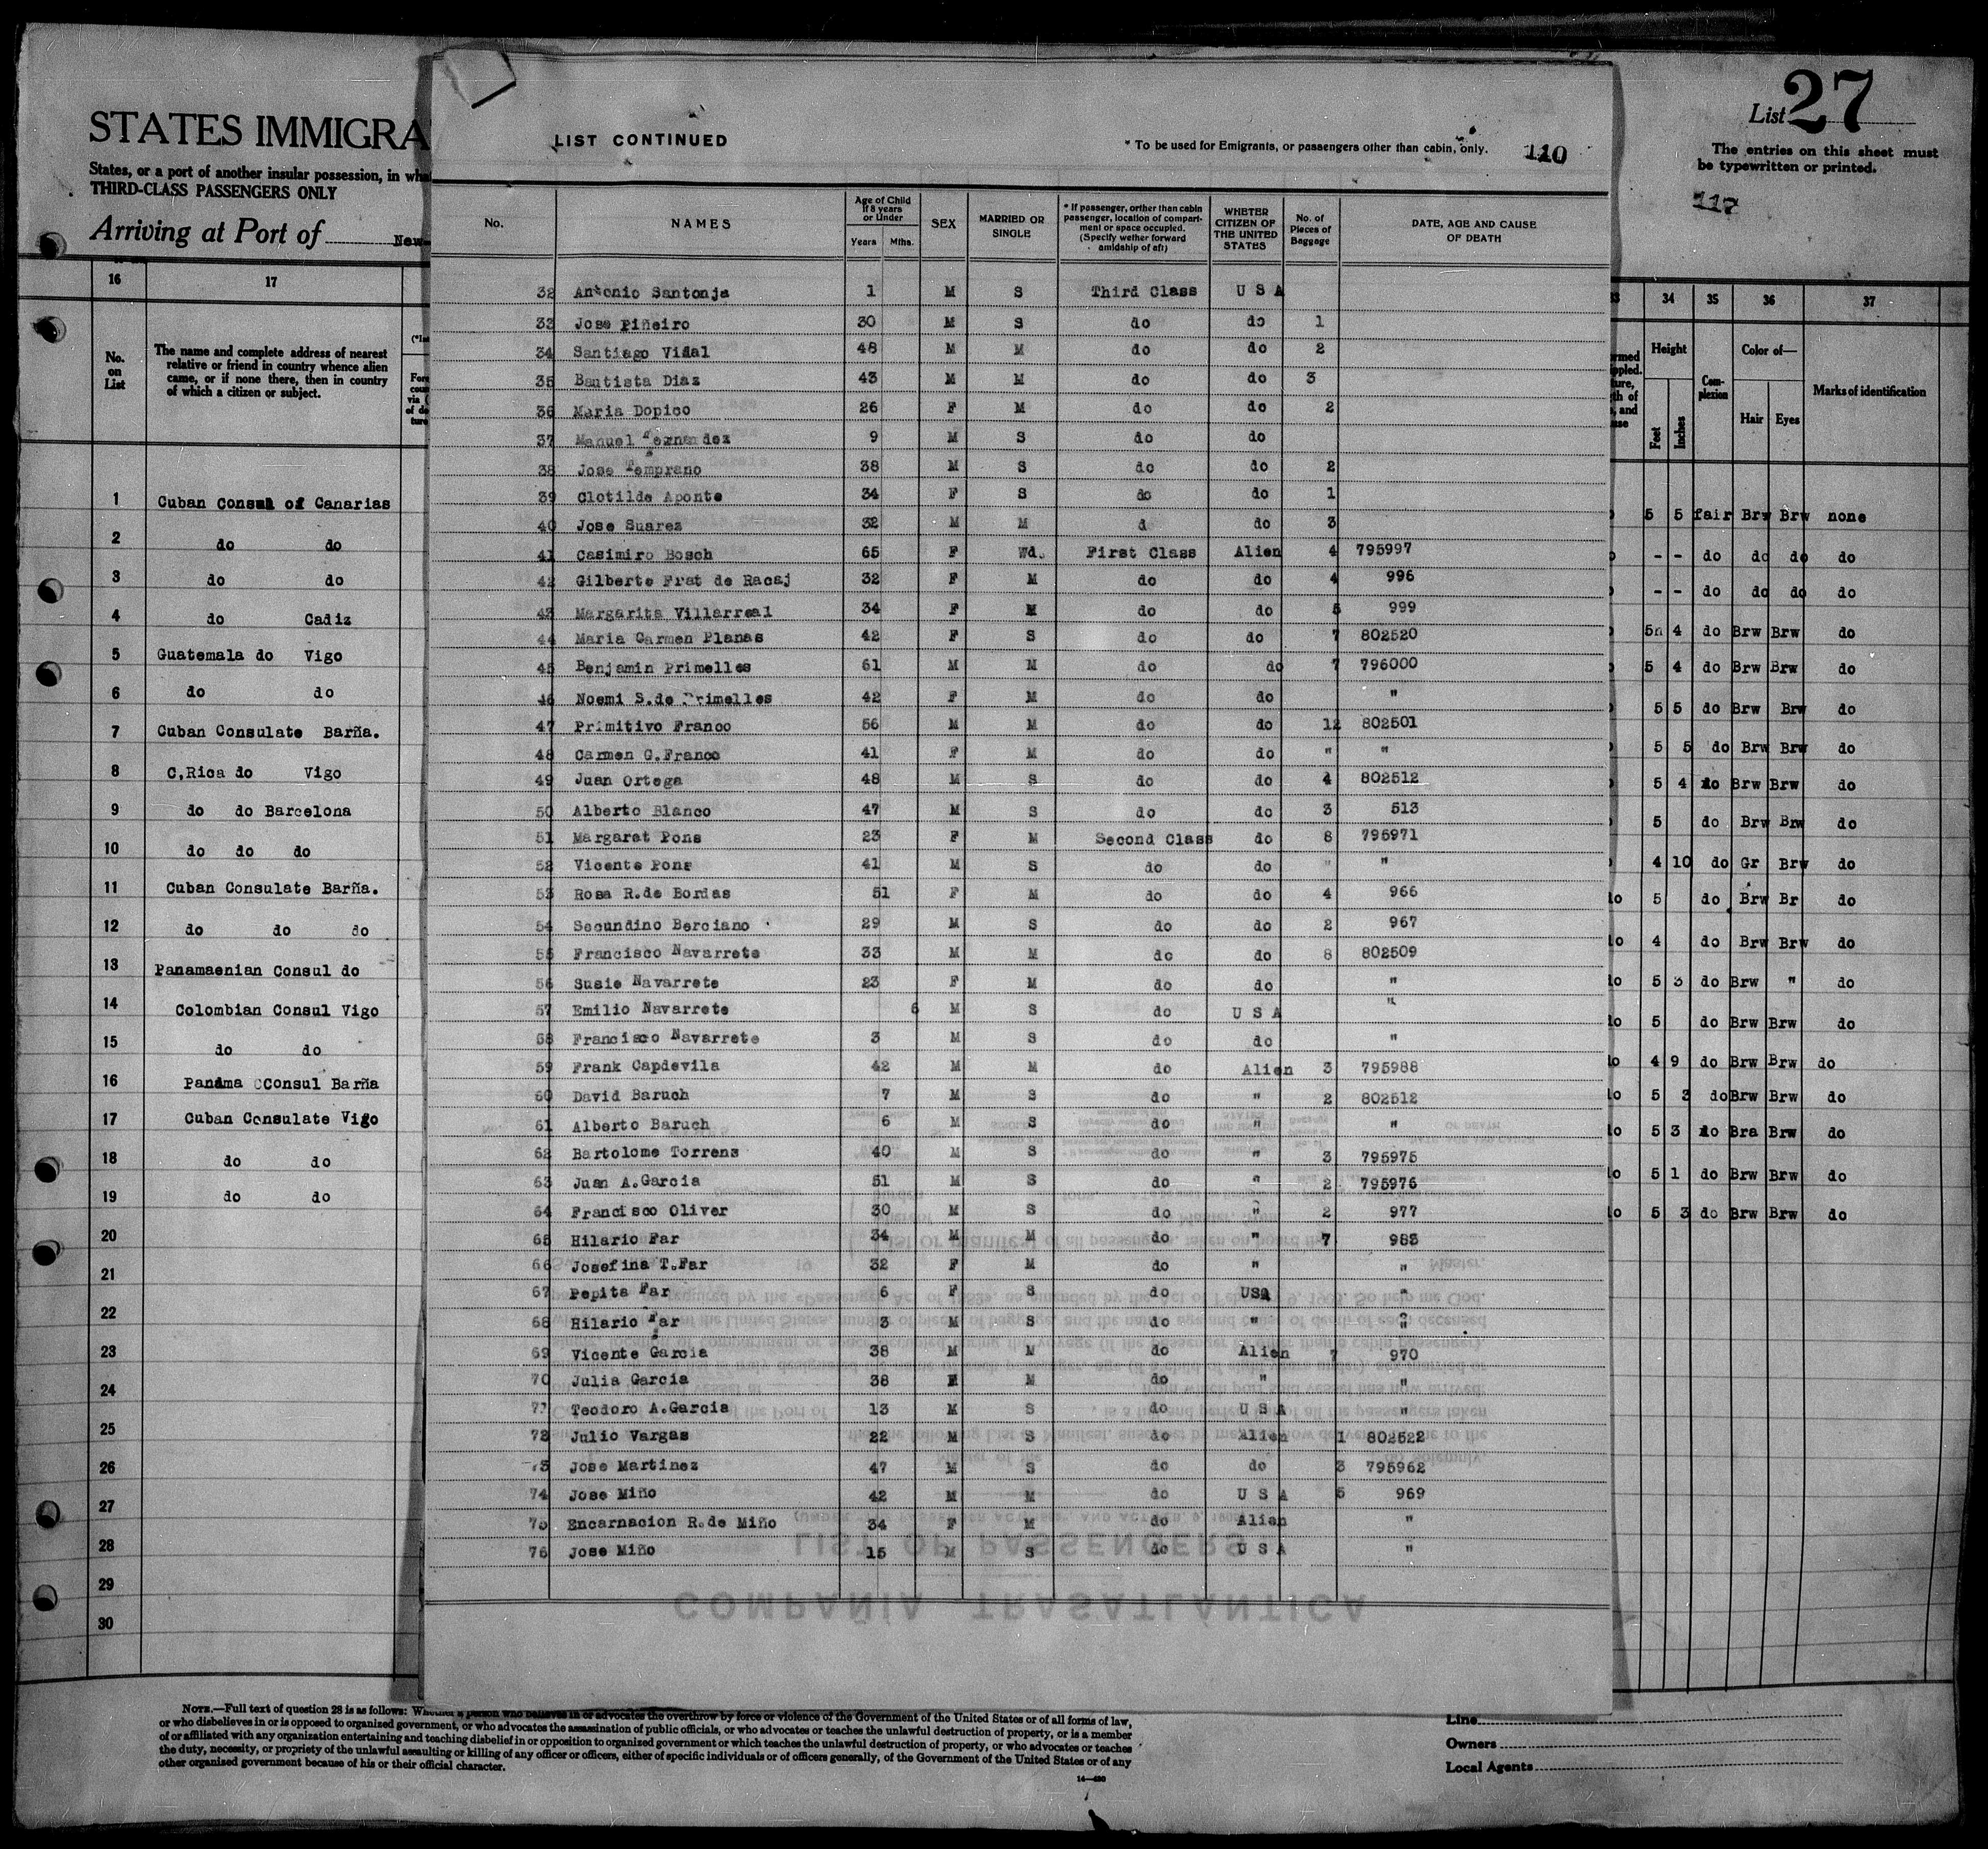 STATES IMMIGRA
States, or a port of another insular possession, in wha
THIRD-CLASS PASSENGERS ONLY
Arriving at Port of New
List 27
The entries on this sheet must
be typewritten or printed.
117
LIST CONTINUED
* To be used for Emigrants, or passengers other than cabin, only.
110
No. NAMES Age of Child If 8 years or Under Years Mths. SEX MARRIED OR SINGLE * If passenger, orther than cabin passenger, location of compartment or space occupied. (Specify wether forward amidship of aft) WHETER CITIZEN OF THE UNITED STATES No. of Pieces of Baggage DATE, AGE AND CAUSE OF DEATH
32 Antonio Santonja 1 M S Third Class U S A
33 Jose Piñeiro 30 M S do do 1
34 Santiago Vidal 48 M M do do 2
35 Bautista Diaz 43 M M do do 3
36 Maria Dopico 26 F M do do 2
37 Manuel Fernandez 9 M S do do
38 Jose Temprano 38 M S do do 2
39 Clotilde Aponte 34 F S do do 1
40 Jose Suarez 32 M M d do 3
41 Casimiro Bosch 65 F Wd. First Class Alien 4 795997
42 Gilberte Frat de Racaj 32 F M do do 4 996
43 Margarita Villarreal 34 F M do do 5 999
44 Maria Carmen Planas 42 F S do do 7 802520
45 Benjamin Primelles 61 M M do do 7 796000
46 Noemi S.de Primelles 42 F M do do "
47 Primitivo Franco 56 M M do do 12 802501
48 Carmen G.Franco 41 F M do do " "
49 Juan Ortega 48 M S do do 4 802512
50 Alberto Blanco 47 M S do do 3 513
51 Margaret Pons 23 F M Second Class do 8 795971
52 Vicente Pons 41 M S do do " "
53 Rosa R.de Bordas 51 F M do do 4 966
54 Secundino Berciano 29 M S do do 2 967
55 Francisco Navarrete 33 M M do do 8 802509
56 Susie Navarrete 23 F M do do "
57 Emilio Navarrete 6 M S do U S A "
58 Francisco Navarrete 3 M S do do "
59 Frank Capdevila 42 M M do Alien 3 795988
60 David Baruch 7 M S do " 2 802512
61 Alberto Baruch 6 M S do " "
62 Bartolome Torrens 40 M S do " 3 795975
63 Juan A.Garcia 51 M S do " 2 795976
64 Francisco Oliver 30 M S do " 2 977
65 Hilario Far 34 M M do " 7 983
66 Josefina T.Far 32 F M do " "
67 Pepita Far 6 F S do USA "
68 Hilario Far 3 M S do " "
69 Vicente Garcia 38 M M do Alien 7 970
70 Julia Garcia 38 M do " "
71 Teodoro A.Garcia 13 M S do U S A "
72 Julio Vargas 22 M S do Alien 1 802522
73 Jose Martinez 47 M S do do 3 795962
74 Jose Miño 42 M M do U S A 5 969
75 Encarnacion R.de Miño 34 F M do Alien "
76 Jose Miño 15 M S do U S A "
LIST OF PASSENGERS
COMPAÑÍA TRASATLÁNTICA
16 17
No. on List
The name and complete address of nearest
relative or friend in country whence alien
came, or if none there, then in country
of which a citizen or subject.
1 Cuban Consul of Canarias
2 do do
3 do do
4 do Cadiz
5 Guatemala do Vigo
6 do do
7 Cuban Consulate Barña.
8 C,Rica do Vigo
9 do do Barcelona
10 do do do
11 Cuban Consulate Barña.
12 do do do
13 Panamaenian Consul do
14 Colombian Consul Vigo
15 do do
16 Panama CConsul Barña
17 Cuban Consulate Vigo
18 do do
19 do do
20
21
22
23
24
25
26
27
28
29
30
33 34 35 36 37
Height Feet Inches Complexion Color of— Hair Eyes Marks of identification
5 5 fair Brw Brw none
- - do do do do
- - do do do do
5 4 do Brw Brw do
5 4 do Brw Brw do
5 5 do Brw Brw do
5 5 do Brw Brw do
5 4 do Brw Brw do
5 do Brw Brw do
4 10 do Gr Brw do
5 do Brw Br do
4 do Brw Brw do
5 3 do Brw " do
5 do Brw Brw do
4 9 do Brw Brw do
5 3 do Brw Brw do
5 3 do Bra Brw do
5 1 do Brw Brw do
5 3 do Brw Brw do
NOTE.—Full text of question 28 is as follows: Whether a person who believes in or advocates the overthrow by force or violence of the Government of the United States or of all forms of law,
or who disbelieves in or is opposed to organized government, or who advocates the assassination of public officials, or who advocates or teaches the unlawful destruction of property, or is a member
of or affiliated with any organization entertaining and teaching disbelief in or opposition to organized government or which teaches the unlawful destruction of property, or who advocates or teaches
the duty, necessity, or propriety of the unlawful assaulting or killing of any officer or officers, either of specific individuals or of officers generally, of the Government of the United States or of any
other organized government because of his or their official character.
Line
Owners
Local Agents